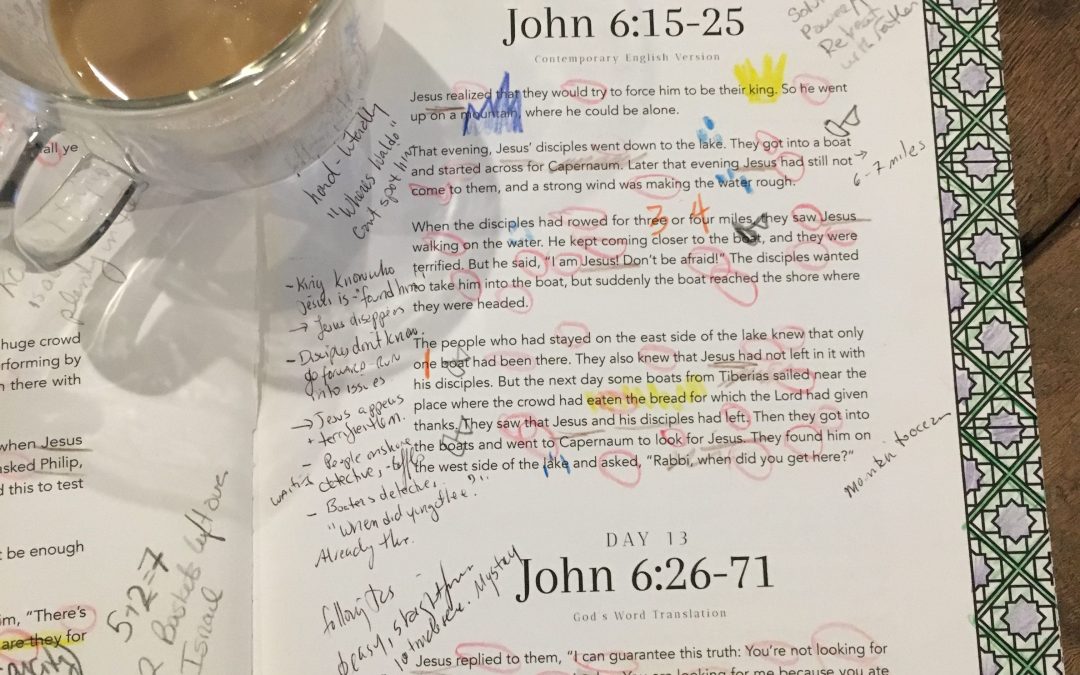 John 6:15-25
Contemporary English Version
Jesus realized that they would try to force him to be their king. So he went
up on a mountain, where he could be alone.
That evening, Jesus' disciples went down to the lake. They got into a boat
and started across for Capernaum. Later that evening Jesus had still not
come to them, and a strong wind was making the water rough.
When the disciples had rowed for three or four miles, they saw Jesus
walking on the water. He kept coming closer to the boat, and they were
terrified. But he said, "I am Jesus! Don't be afraid!" The disciples wanted
to take him into the boat, but suddenly the boat reached the shore where
they were headed.
The people who had stayed on the east side of the lake knew that only
one boat had been there. They also knew that Jesus had not left in it with
his disciples. But the next day some boats from Tiberias sailed near the
place where the crowd had eaten the bread for which the Lord had given
thanks. They saw that Jesus and his disciples had left. Then they got into
the boats and went to Capernaum to look for Jesus. They found him on
the west side of the lake and asked, "Rabbi, when did you get here?"
DAY 13
John 6:26-71
God's Word Translation
Jesus replied to them, "I can guarantee this truth: You're not looking for
me because you ate
Power
Retreat
with Father
6-7 miles
3 4
1
hard - literally
"Where's Waldo"
Can't spot him
- King know who
Jesus is - found him
→ Jesus disappears
- Disciples don't know.
go forward run
into issues
→ Jesus appears
+ terrifies them.
- People on shore
detective,
- Boaters detective,
"When did you get here?"
Already there.
Mystery
all ye
huge crowd
rforming by
n there with
when Jesus
asked Philip,
d this to test
t be enough
im, "There's
are they for
5+2=7
2 Baskets left over
Israel